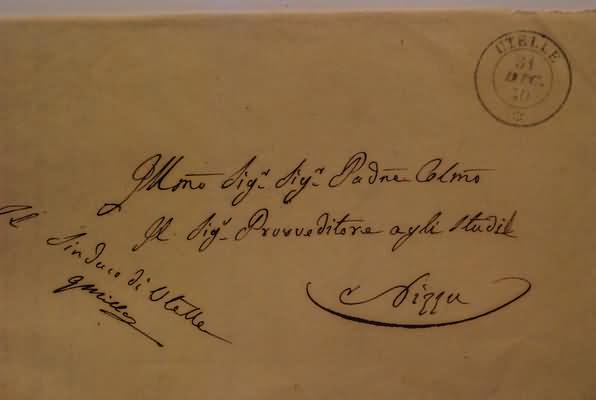 UTELLE
31
DIC.
Illmo Sigr. Sigr. Padne Colmo
Il Sigr. Provveditore agli Studii
Nizza
Il Sindaco di Utelle